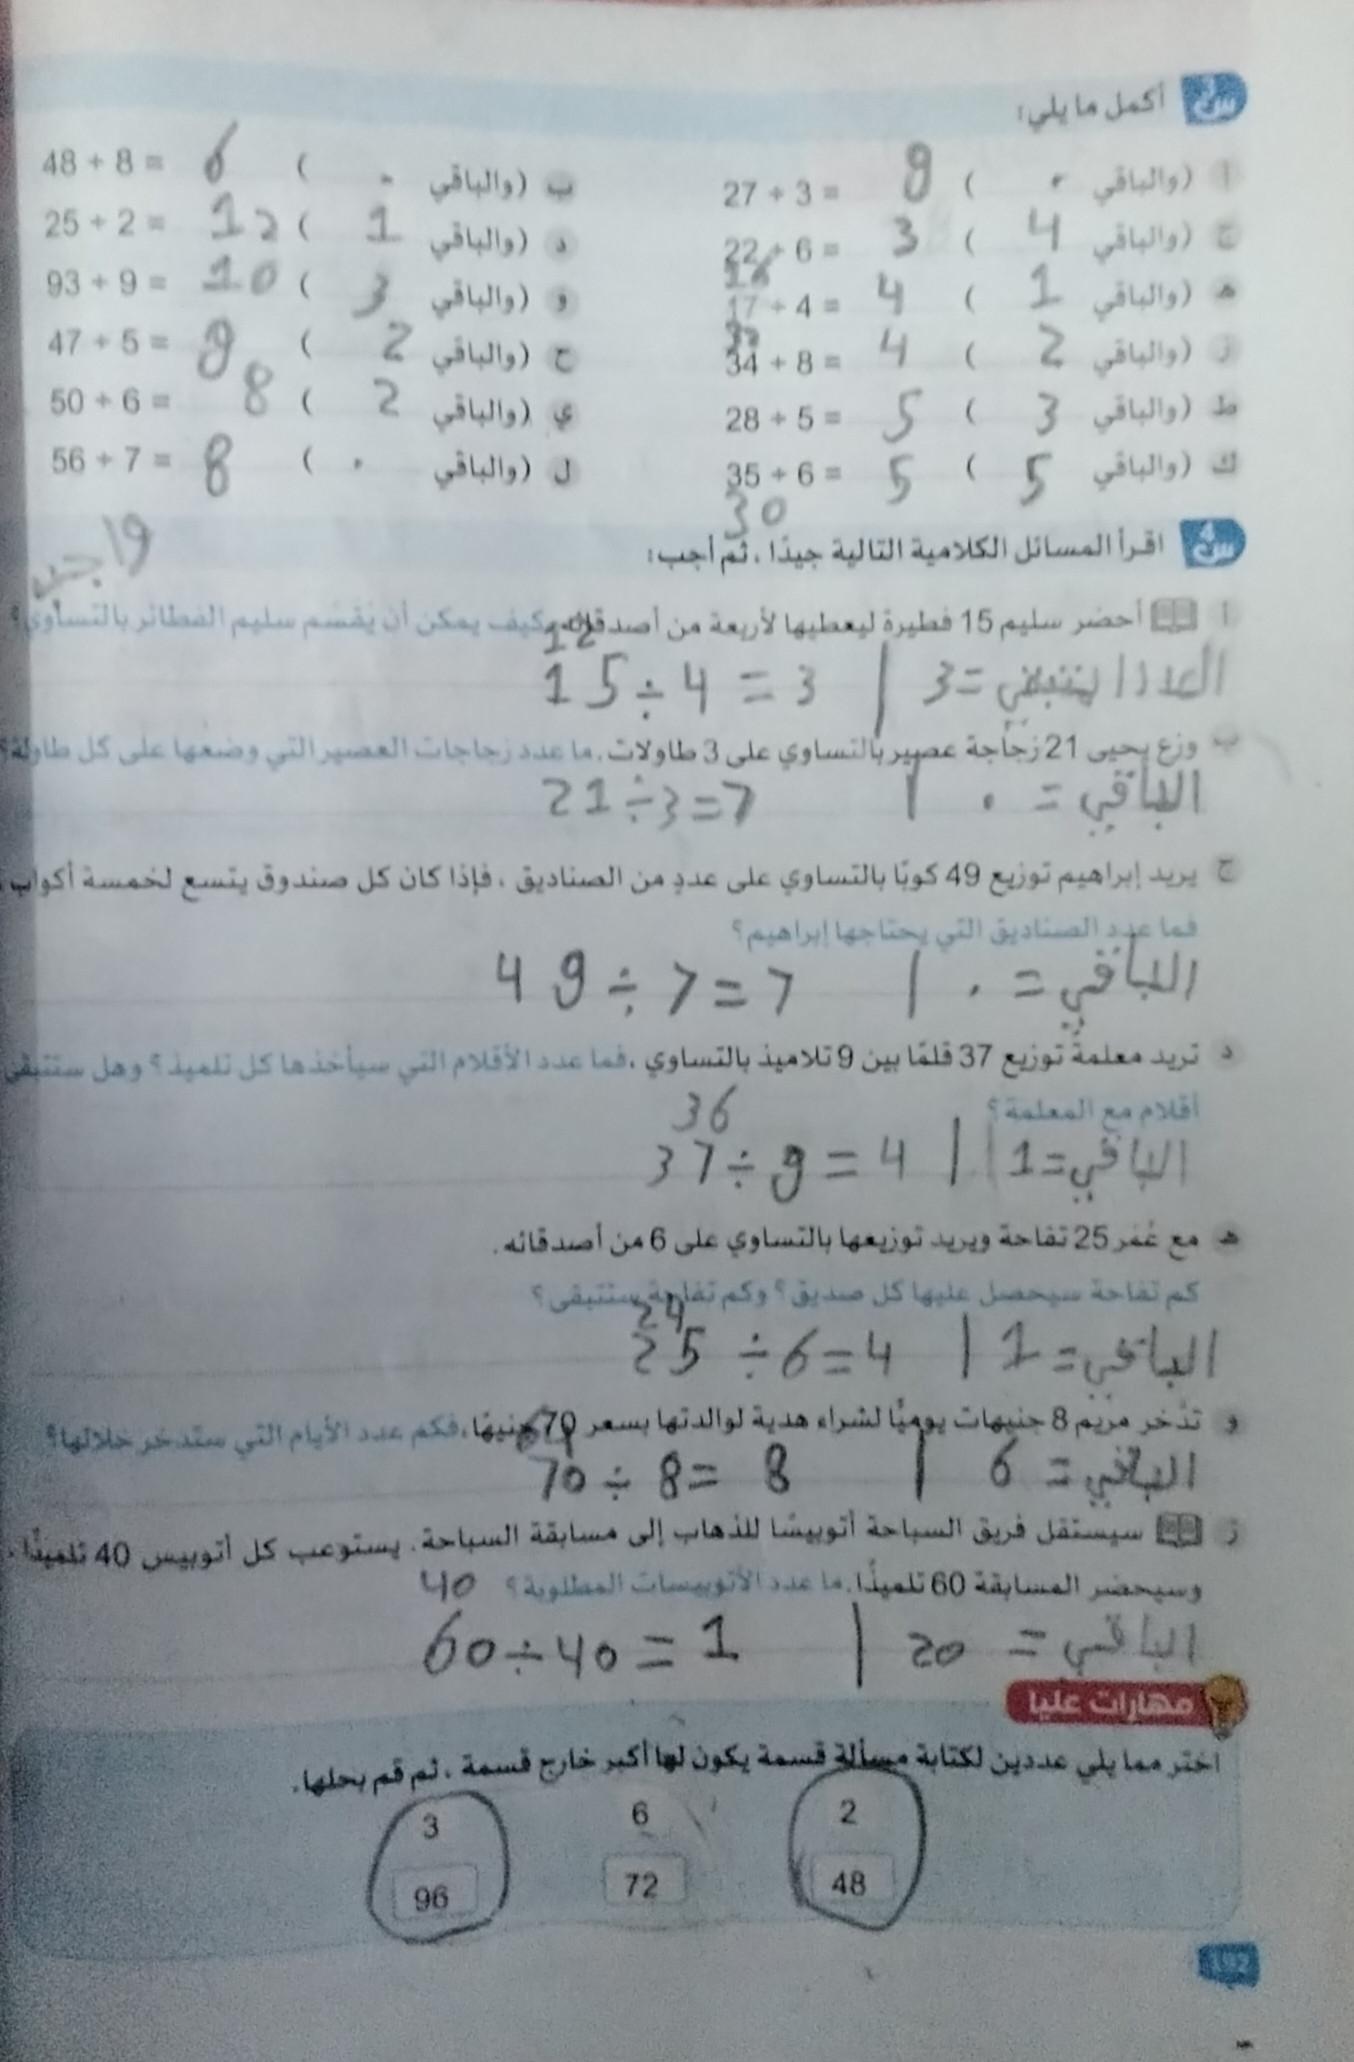 س3 أكمل ما يلي:
أ 27 ÷ 3 = 9 (والباقي ٠ )
ب 48 ÷ 8 = 6 (والباقي ٠ )
ج 22 ÷ 6 = 3 (والباقي 4 )
د 25 ÷ 2 = 12 (والباقي 1 )
16
هـ 17 ÷ 4 = 4 (والباقي 1 )
و 93 ÷ 9 = 10 (والباقي 3 )
32
ز 34 ÷ 8 = 4 (والباقي 2 )
ح 47 ÷ 5 = 9 (والباقي 2 )
ط 28 ÷ 5 = 5 (والباقي 3 )
ي 50 ÷ 6 = 8 (والباقي 2 )
ك 35 ÷ 6 = 5 (والباقي 5 )
ل 56 ÷ 7 = 8 (والباقي ٠ )
30
واجب
س4 اقرأ المسائل الكلامية التالية جيدًا، ثم أجب:
أ أحضر سليم 15 فطيرة ليعطيها لأربعة من أصدقائه. كيف يمكن أن يُقسِّم سليم الفطائر بالتساوي؟
12
15 ÷ 4 = 3 | العدد المتبقي = 3
ب وزع يحيى 21 زجاجة عصير بالتساوي على 3 طاولات. ما عدد زجاجات العصير التي وضعها على كل طاولة؟
21 ÷ 3 = 7 | الباقي = ٠
ج يريد إبراهيم توزيع 49 كوبًا بالتساوي على عددٍ من الصناديق، فإذا كان كل صندوق يتسع لخمسة أكواب،
فما عدد الصناديق التي يحتاجها إبراهيم؟
49 ÷ 7 = 7 | الباقي = ٠
د تريد معلمة توزيع 37 قلمًا بين 9 تلاميذ بالتساوي، فما عدد الأقلام التي سيأخذها كل تلميذ؟ وهل ستتبقى
أقلام مع المعلمة؟
36
37 ÷ 9 = 4 | الباقي = 1
هـ مع عُمَر 25 تفاحة ويريد توزيعها بالتساوي على 6 من أصدقائه.
كم تفاحة سيحصل عليها كل صديق؟ وكم تفاحة ستتبقى؟
24
25 ÷ 6 = 4 | الباقي = 1
و تدَّخر مريم 8 جنيهات يوميًّا لشراء هدية لوالدتها بسعر 70 جنيهًا، فكم عدد الأيام التي ستدخر خلالها؟
70 ÷ 8 = 8 | الباقي = 6
ز سيستقل فريق السباحة أتوبيسًا للذهاب إلى مسابقة السباحة. يستوعب كل أتوبيس 40 تلميذًا،
وسيحضر المسابقة 60 تلميذًا. ما عدد الأتوبيسات المطلوبة؟
40
60 ÷ 40 = 1 | الباقي = 20
مهارات عليا
اختر مما يلي عددين لكتابة مسألة قسمة يكون لها أكبر خارج قسمة، ثم قم بحلها.
2 6 3
48 72 96
192